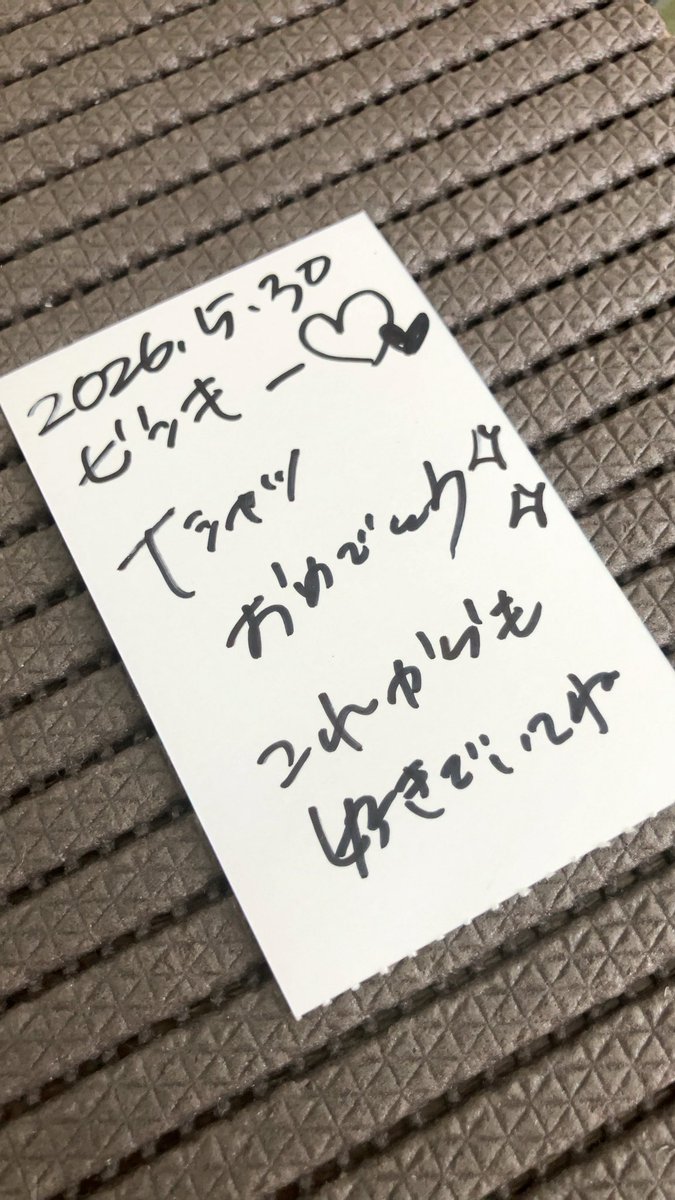 2026.5.30
ビッキー
Tシャツ
おめでとう
これからも
好きでいてね